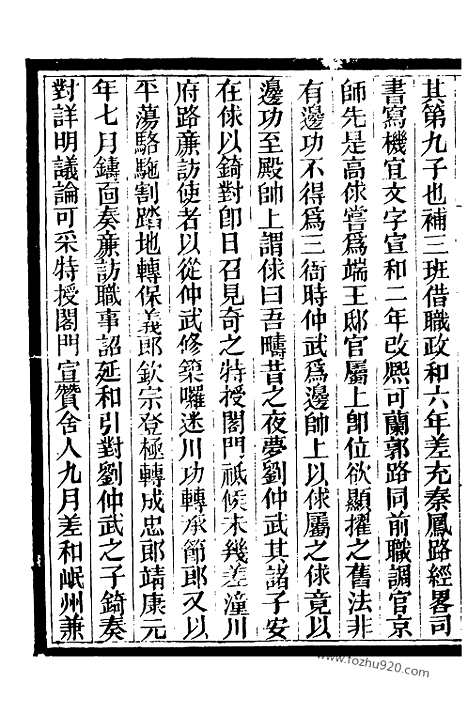 其第九子也補三班借職政和六年差充秦鳳路經畧司
書寫機宜文字宣和二年改熙河蘭郭路同前職調官京
師先是高俅嘗爲端王邸官屬上卽位欲顯擢之舊法非
有邊功不得爲三衙時仲武爲邊帥上以俅屬之俅竟以
邊功至殿帥上謂俅曰吾疇昔之夜夢劉仲武其諸子安
在俅以錡對卽日召見奇之特授閤門祗候未幾差潼川
府路廉訪使者以從仲武修築囉迷川功轉承節郎又以
平蕩駱駞割踏地轉保義郎欽宗登極轉成忠郎靖康元
年七月錡面奏廉訪職事詔延和引對劉仲武之子錡奏
對詳明議論可采特授閤門宣贊舍人九月差和岷州兼
www.fozhu920.com